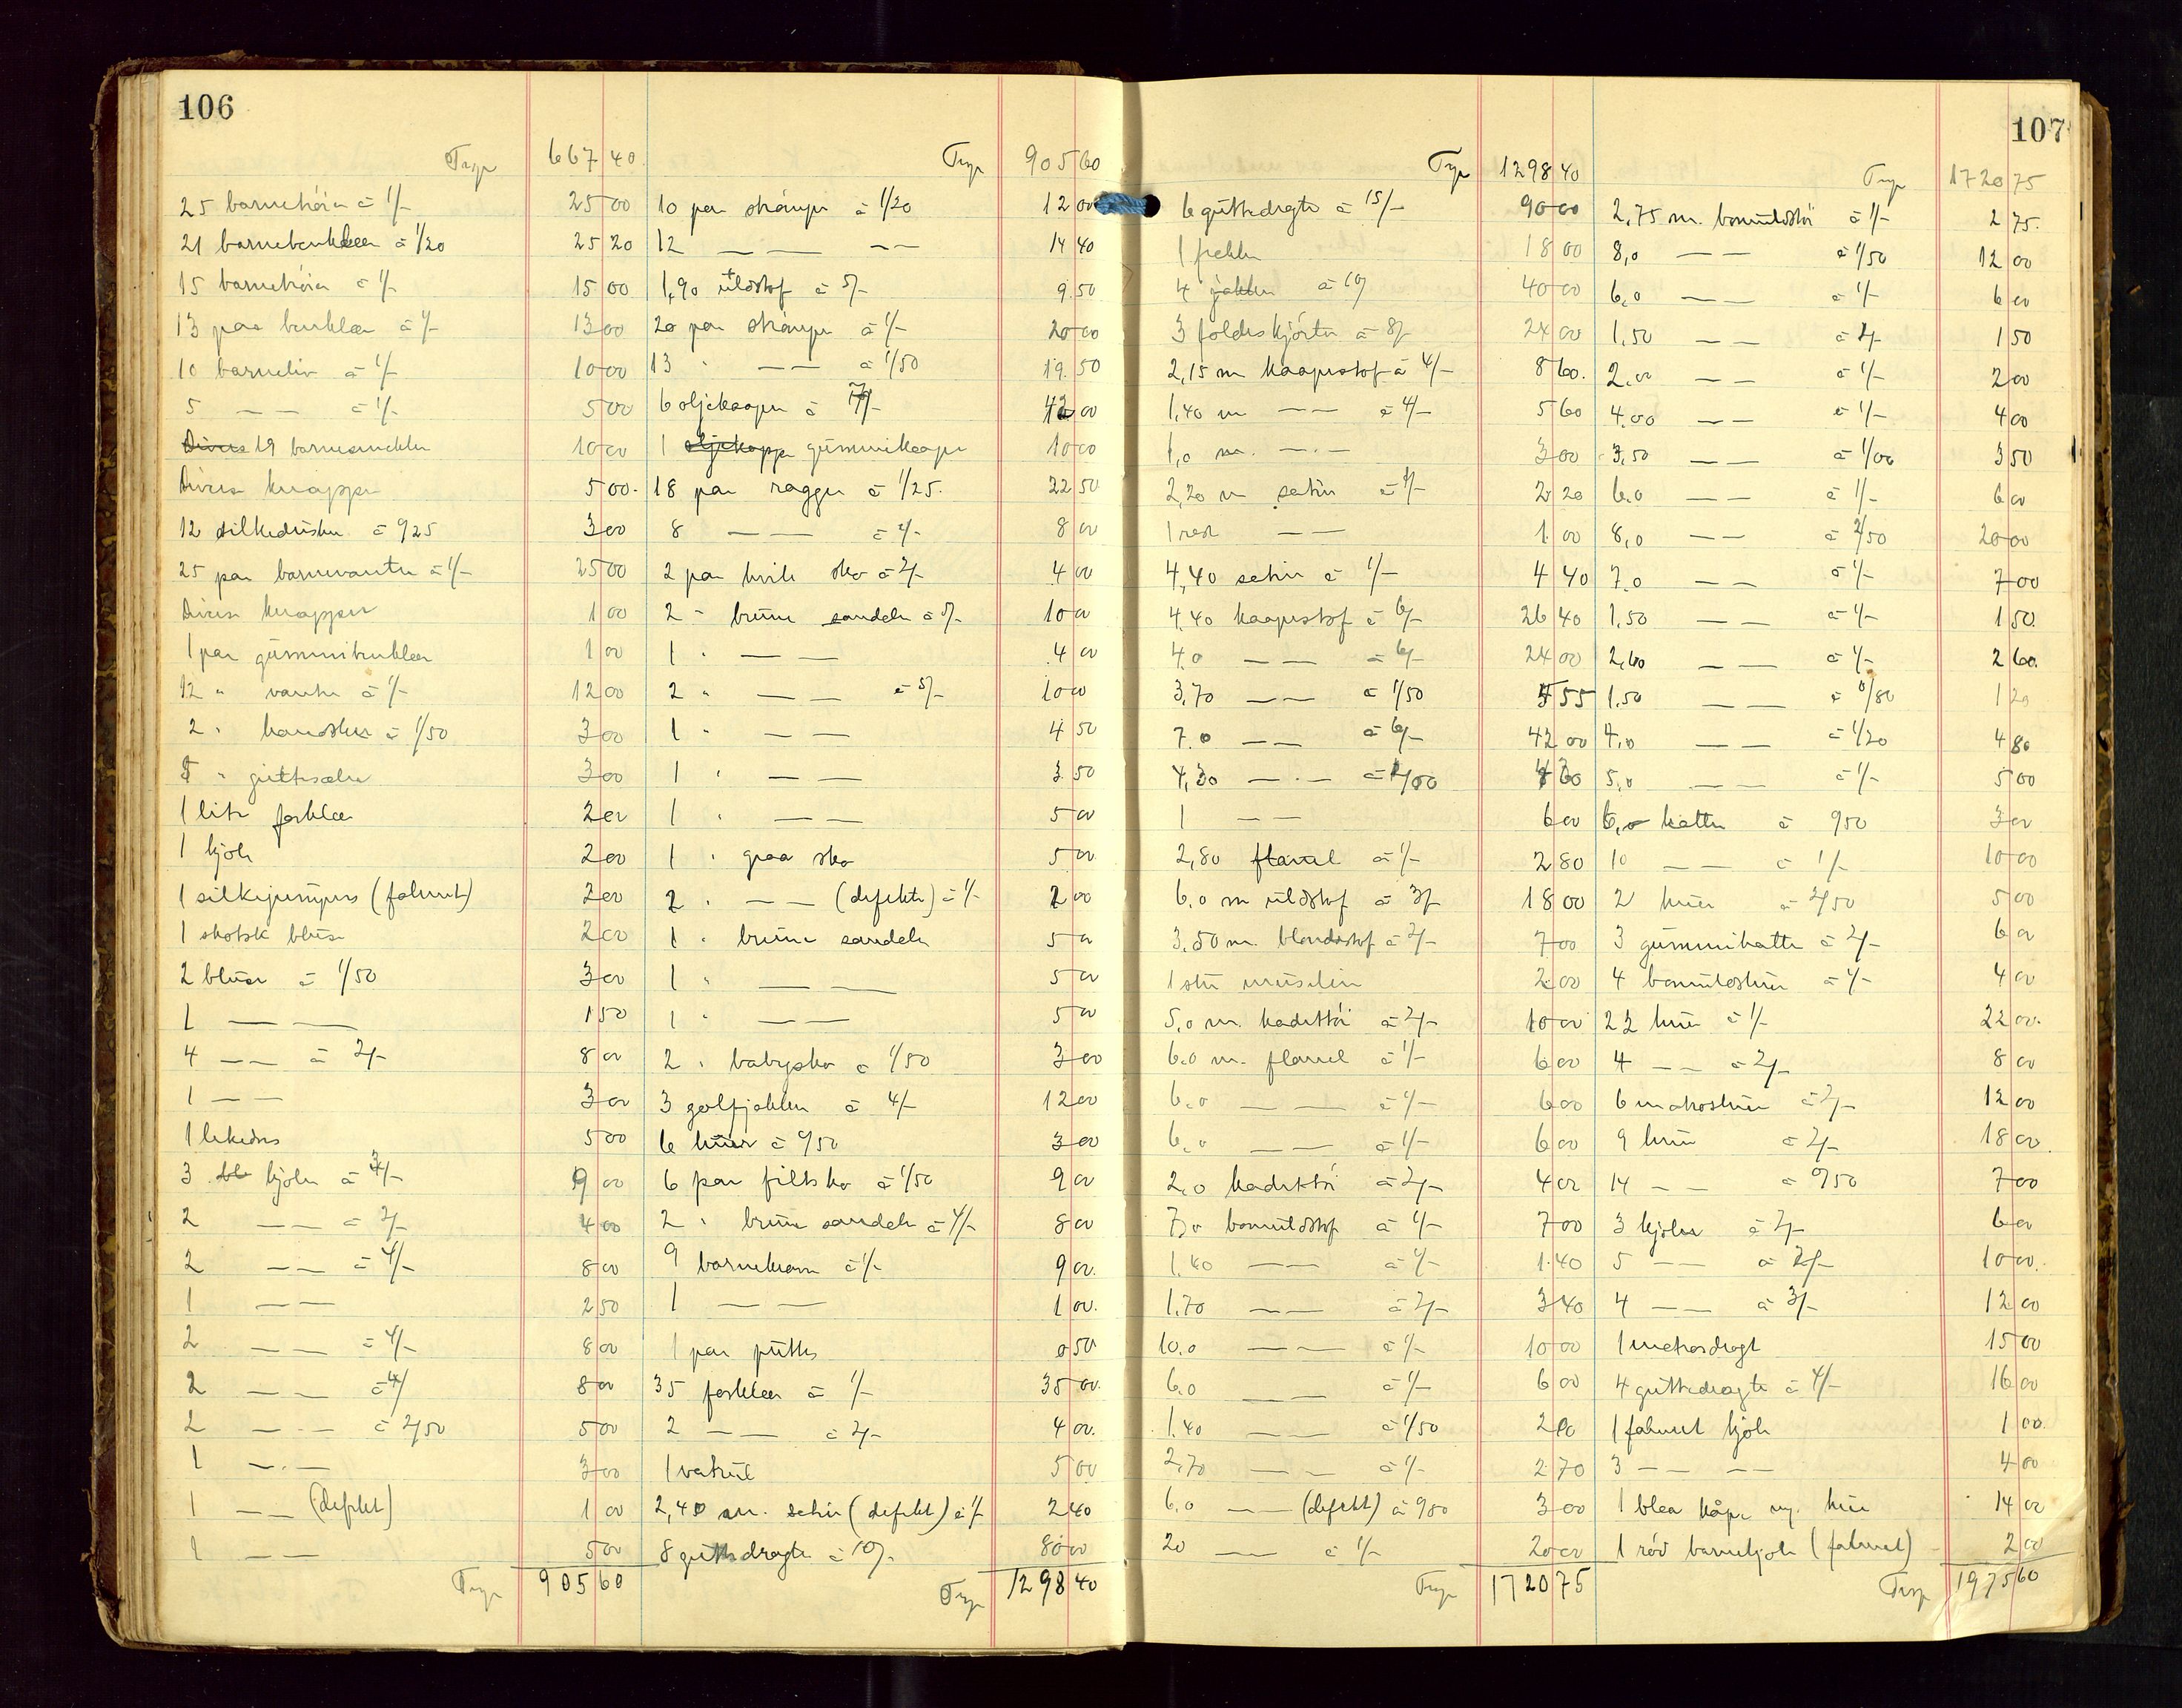 106
Trsp 667 40
25 barnetröier à 1/- 25 00
21 barnebenklær à 1/20 25 20
15 barnetröier à 1/- 15 00
13 par benklær à 1/- 13 00
10 barneliv à 1/- 10 00
5 — — à 1/- 5 00
19 barnesmekker 10 00
Diverse knapper 5 00
12 silkeduske à 0/25 3 00
25 par barnevanter à 1/- 25 00
Diverse knapper 1 00
1 par gummibenklær 1 00
12 " vanter à 1/- 12 00
2 " hansker à 1/50 3 00
" gutteseler 3 00
1 lite forklæ 2 00
1 kjole 2 00
1 silkejumpers (falmet) 2 00
1 skotsk bluse 2 00
2 bluser à 1/50 3 00
1 — — 1 50
4 — — à 2/- 8 00
1 — — 3 00
1 lekedres 5 00
3 kjoler à 3/- 9 00
2 — — à 2/- 4 00
2 — — à 4/- 8 00
1 — — 2 50
2 — — à 4/- 8 00
2 — — à 4/ 8 00
2 — — à 2/50 5 00
1 — — 3 00
1 — — (defekt) 1 00
1 — — 5 00
Trsp 905 60
Trsp 905 60
10 par strömper à 1/20 12 00
12 — — — — 14 40
1,90 ullstof à 5/- 9 50
20 par strömper à 1/- 20 00
13 " — — à 1/50 19 50
6 oljekaaper à 7/- 42 00
1 oljekappe gummikaape 10 00
18 par ragger à 1/25 22 50
8 — — à 1/- 8 00
2 par hvite sko à 2/- 4 00
2 " brune sandaler à 5/- 10 00
1 " — — 4 00
2 " — — à 5/- 10 00
1 " — — 4 50
1 " — — 3 50
1 " — — 5 00
1 " graa sko 5 00
2 " — — (defekte) à 1/- 2 00
1 " brune sandaler 5 00
1 " — — 5 00
1 " — — 5 00
2 " babysko à 1/50 3 00
3 golfjakker à 4/- 12 00
6 huer à 0/50 3 00
6 par filtsko à 1/50 9 00
2 " brune sandaler à 4/- 8 00
9 barnekraver à 1/- 9 00
1 — — 1 00
1 par puttis 0 50
35 forklær à 1/- 35 00
2 — — à 2/- 4 00
1 5 00
2,40 m. satin (defekt) à 1/ 2 40
8 guttedragter à 10/- 80 00
Trsp 1298 40
107
Trsp 1298 40
6 guttedragter à 15/- 90 00
1 18 00
4 jakker à 10/ 40 00
3 foldeskjörter à 8/- 24 00
2,15 m kaapestof à 4/- 8 60
1,40 m — — à 4/- 5 60
1,0 m. — — 3 00
2,20 m satin à 1/- 2 20
1 rest — — 1 00
4,40 satin à 1/- 4 40
4,40 kaapestof à 6/- 26 40
4,0 — — à 6/- 24 00
3,70 — — à 1/50 5 55
7,0 — — à 6/- 42 00
4,30 — — à 1/00 4 30
1 — — 6 00
2,80 flanel à 1/- 2 80
6,0 m ullstof à 3/- 18 00
3,50 m. blondestof à 2/- 7 00
1 stk muselin 2 00
5,0 m. kadettöi à 2/- 10 00
6,0 m. flanel à 1/- 6 00
6,0 — — à 1/- 6 00
6,0 — — à 1/- 6 00
2,0 kadettöi à 2/- 4 00
7,0 bomuldstof à 1/- 7 00
1,40 — — à 1/- 1 40
1,70 — — à 2/- 3 40
10,0 — — à 1/- 10 00
6,0 — — à 1/- 6 00
1,40 — — à 1/50 2 10
2,70 — — à 1/- 2 70
6,0 — — (defekt) à 0/50 3 00
20 — — à 1/- 20 00
Trsp 1720 75
Trsp 1720 75
2,75 m. bomuldstöi à 1/- 2 75
8,0 — — à 1/50 12 00
6,0 — — à 1/- 6 00
1,50 — — à 1/- 1 50
2,00 — — à 1/- 2 00
4,00 — — à 1/- 4 00
3,50 — — à 1/00 3 50
6,0 — — à 1/- 6 00
8,0 — — à 2/50 20 00
7,0 — — à 1/- 7 00
1,50 — — à 1/- 1 50
2,60 — — à 1/- 2 60
1,50 — — à 0/80 1 20
4,0 — — à 1/20 4 80
5,0 — — à 1/- 5 00
6,0 hatter à 0/50 3 00
10 — — à 1/- 10 00
2 huer à 2/50 5 00
3 gummihatter à 2/- 6 00
4 bomuldshuer à 1/- 4 00
22 huer à 1/- 22 00
4 — — à 2/- 8 00
6 matroshuer à 2/- 12 00
9 huer à 2/- 18 00
14 — — à 0/50 7 00
3 kjoler à 2/- 6 00
5 — — à 2/- 10 00
4 — — à 3/- 12 00
1 matrosdragt 15 00
4 guttedragter à 4/- 16 00
1 falmet kjole 1 00
3 — — — — 4 00
1 blaa kåpe og hue 14 00
1 röd barnekjole (falmet) 2 00
Trsp 1975 60